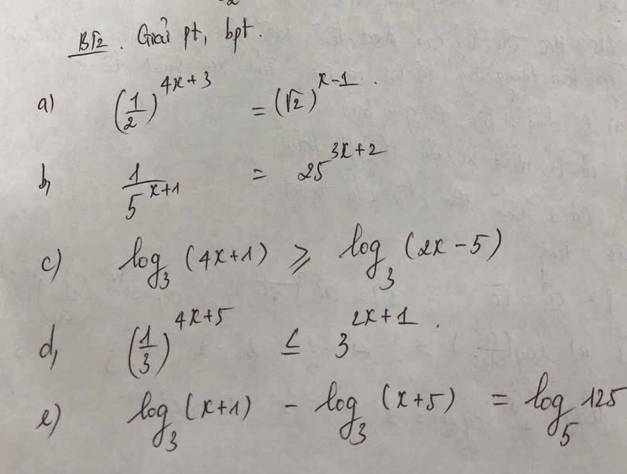 BT2. Giải pt, bpt.
a) (1/2)^(4x+3) = (√2)^(x-1).
b, 1/5^(x+1) = 25^(3x+2)
c) log₃(4x+1) ≥ log₃(2x-5)
d, (1/3)^(4x+5) ≤ 3^(2x+1).
e) log₃(x+1) - log₃(x+5) = log₅125